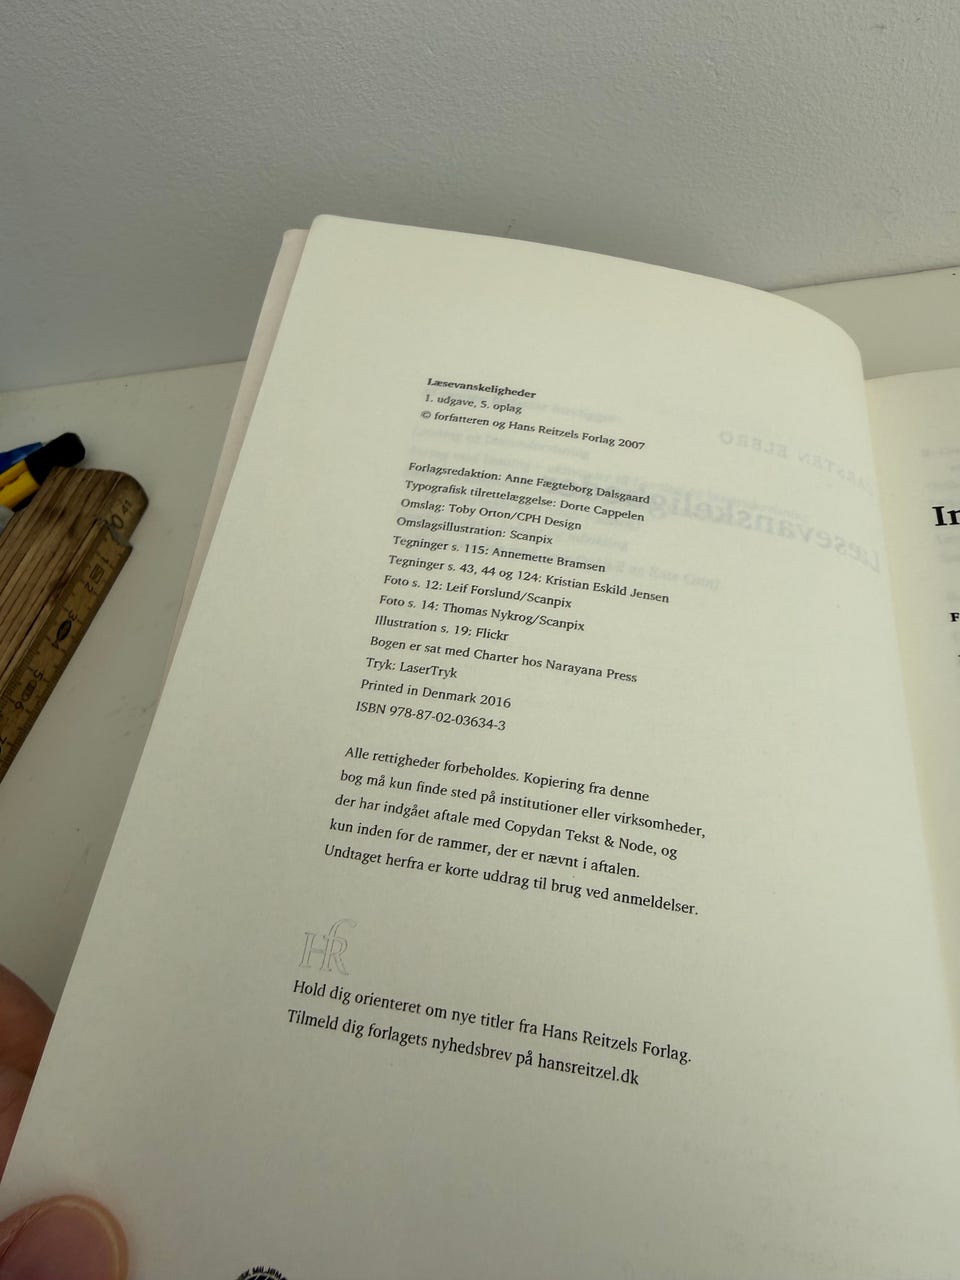 Læsevanskeligheder
1. udgave, 5. oplag
© forfatteren og Hans Reitzels Forlag 2007
Forlagsredaktion: Anne Fægteborg Dalsgaard
Typografisk tilrettelæggelse: Dorte Cappelen
Omslag: Toby Orton/CPH Design
Omslagsillustration: Scanpix
Tegninger s. 115: Annemette Bramsen
Tegninger s. 43, 44 og 124: Kristian Eskild Jensen
Foto s. 12: Leif Forslund/Scanpix
Foto s. 14: Thomas Nykrog/Scanpix
Illustration s. 19: Flickr
Bogen er sat med Charter hos Narayana Press
Tryk: LaserTryk
Printed in Denmark 2016
ISBN 978-87-02-03634-3
Alle rettigheder forbeholdes. Kopiering fra denne
bog må kun finde sted på institutioner eller virksomheder,
der har indgået aftale med Copydan Tekst & Node, og
kun inden for de rammer, der er nævnt i aftalen.
Undtaget herfra er korte uddrag til brug ved anmeldelser.
HR
Hold dig orienteret om nye titler fra Hans Reitzels Forlag.
Tilmeld dig forlagets nyhedsbrev på hansreitzel.dk